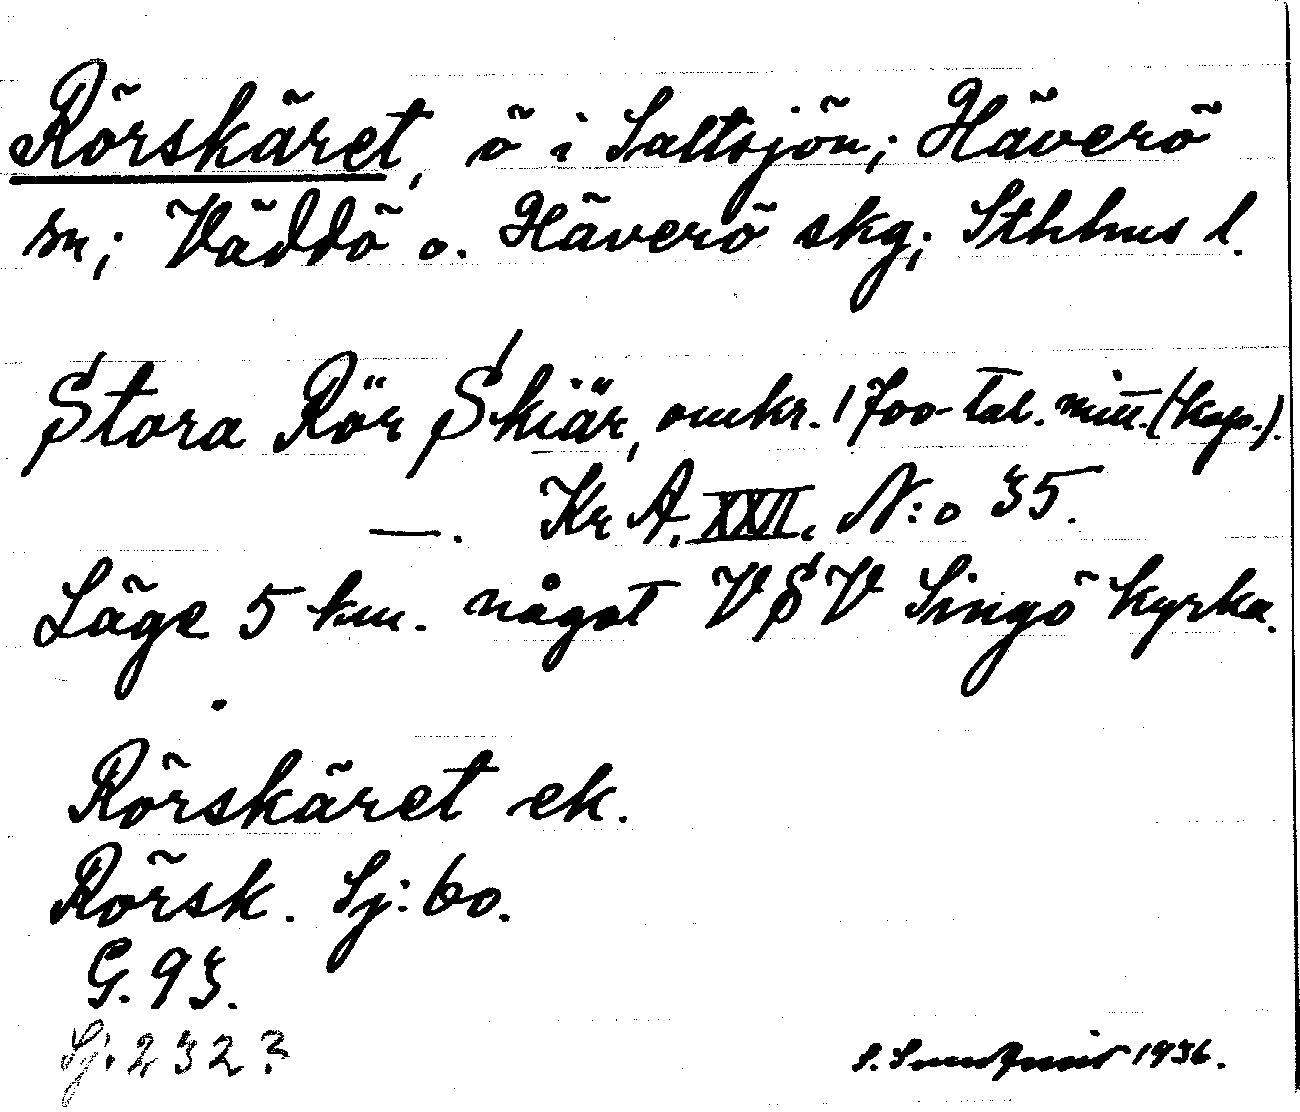 Rörskäret, ö i Saltsjön; Häverö
sn; Väddö o. Häverö skg; Sthlms l.
Stora Rör Skiär, omkr. 1700-tal. mitt. (Kop.).
—. Kr A. XXII. N:o 35.
Läge 5 km. något VSV Singö kyrka.
Rörskäret ek.
Rörsk. Sj: 60.
G. 93.
Sj: 232?
S. Sundqvist 1936.